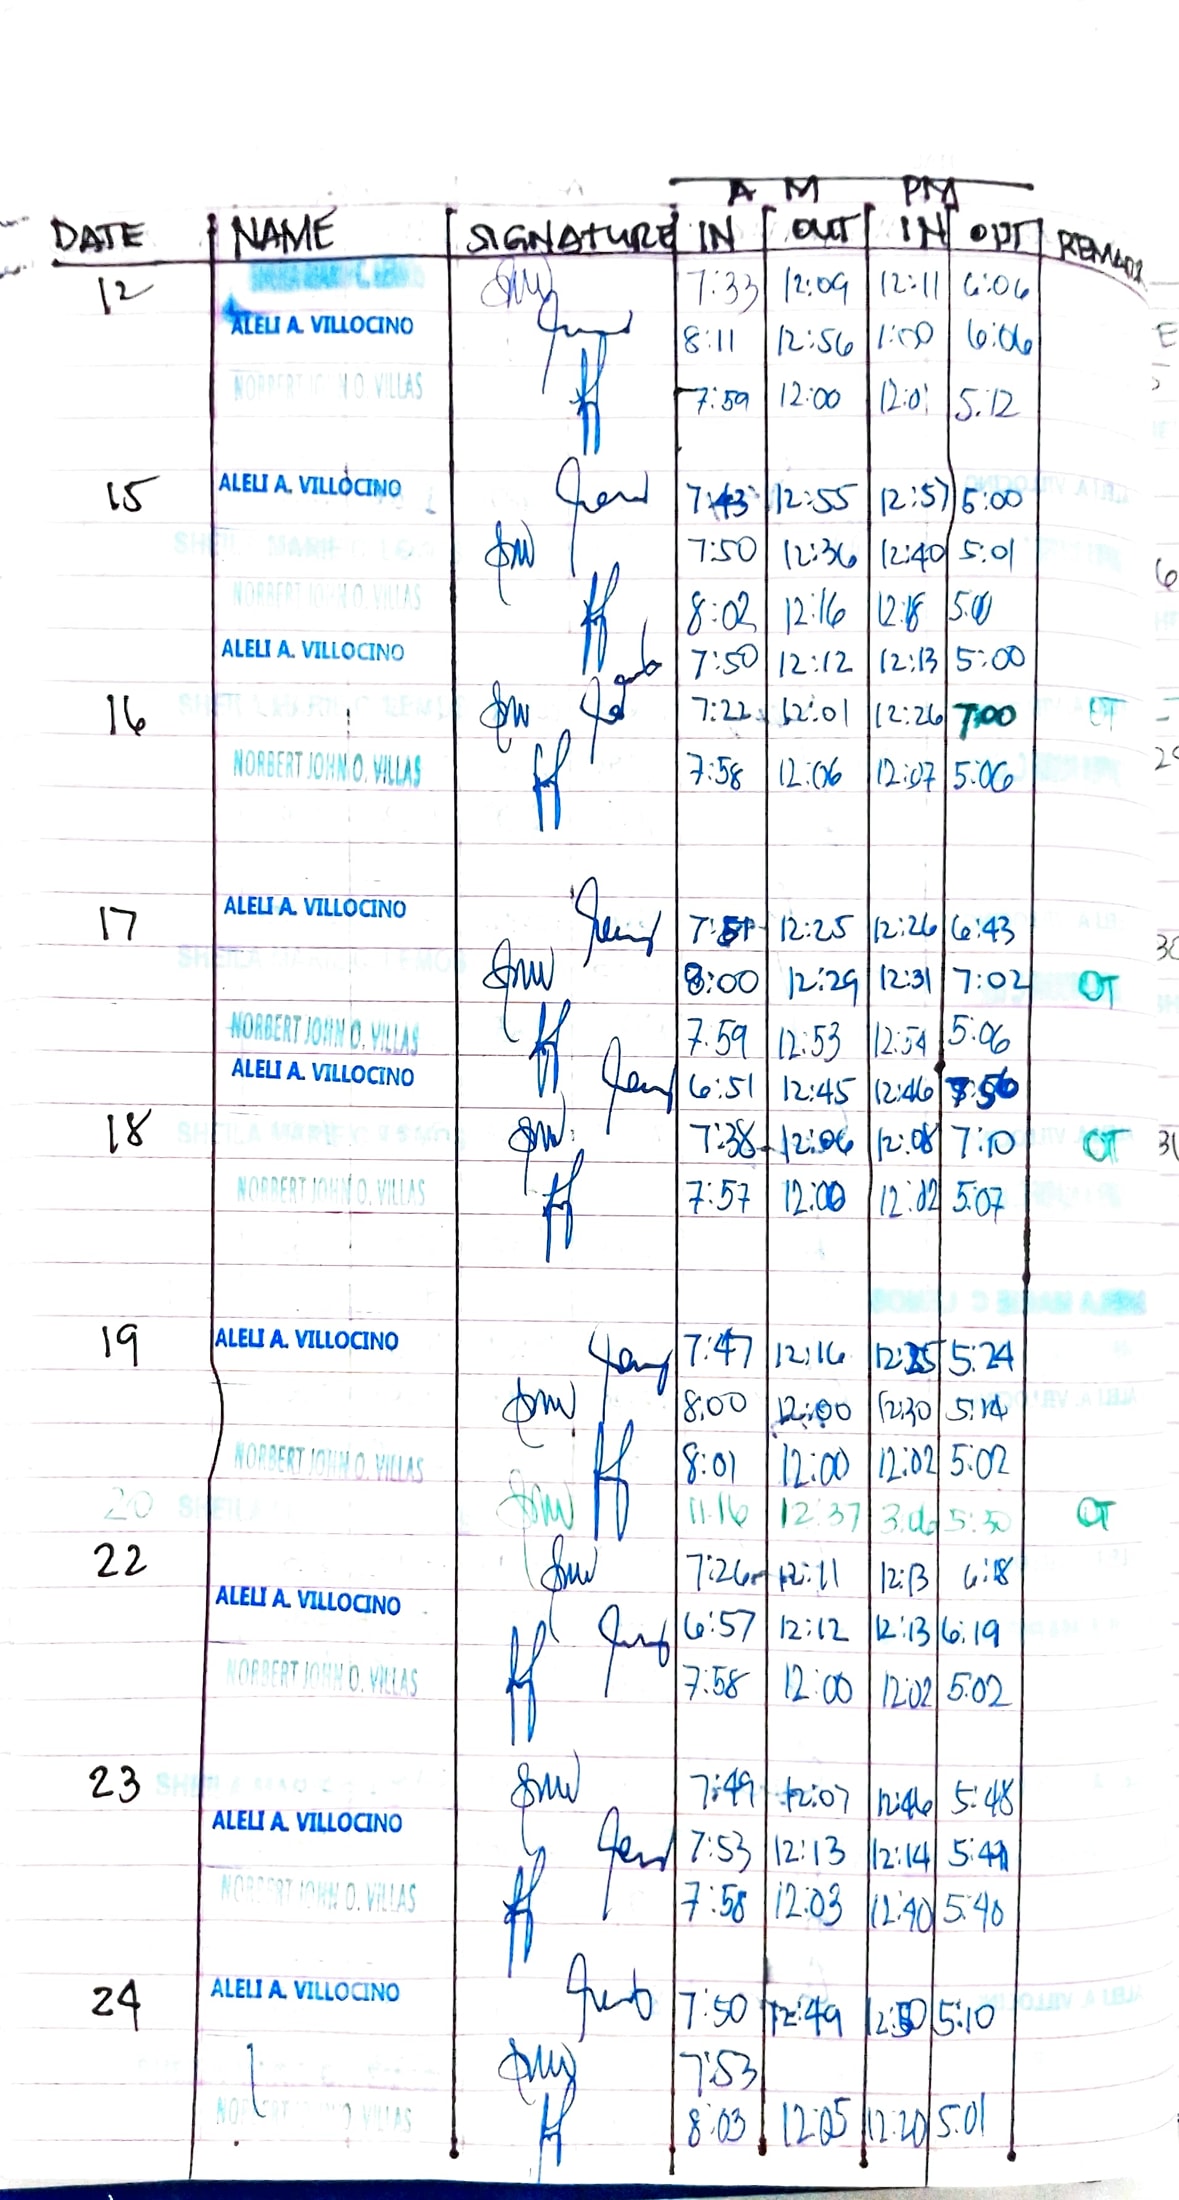 A M PM
DATE NAME SIGNATURE IN OUT IN OUT
12 7:33 12:09 12:11 6:06
ALELI A. VILLOCINO 8:11 12:56 1:00 6:06
NORBERT JOHN O. VILLAS 7:59 12:00 12:01 5:12
15 ALELI A. VILLOCINO 7:43 12:55 12:57 5:00
SHEILA MARIE 7:50 12:36 12:40 5:01
NORBERT JOHN O. VILLAS 8:02 12:16 12:18
ALELI A. VILLOCINO 7:50 12:12 12:13 5:00
16 7:22 12:01 12:26 7:00 OT
NORBERT JOHN O. VILLAS 7:58 12:06 12:07 5:06
17 ALELI A. VILLOCINO 12:25 12:26 6:43
SHEILA MARIE C. LEMOS 8:00 12:29 12:31 7:02 OT
NORBERT JOHN O. VILLAS 7:59 12:53 12:54 5:06
ALELI A. VILLOCINO 6:51 12:45 12:46
18 SHEILA MARIE C. LEMOS 7:38 12:06 12:08 7:10 OT
NORBERT JOHN O. VILLAS 7:57 12:00 12:02 5:07
19 ALELI A. VILLOCINO 7:47 12:16 5:24
8:00 12:00 12:30 5:14
NORBERT JOHN O. VILLAS 8:01 12:00 12:02 5:02
20 SHEILA 11:16 12:37 3:06 5:30 OT
22 7:26 12:11 12:13 6:18
ALELI A. VILLOCINO 6:57 12:12 12:13 6:19
NORBERT JOHN O. VILLAS 7:58 12:00 12:02 5:02
23 7:49 12:07 12:46 5:48
ALELI A. VILLOCINO 7:53 12:13 12:14
NORBERT JOHN O. VILLAS 7:58 12:03 12:40 5:40
24 ALELI A. VILLOCINO 7:50 12:49 12:50 5:10
7:53
8:03 12:05 12:20 5:01